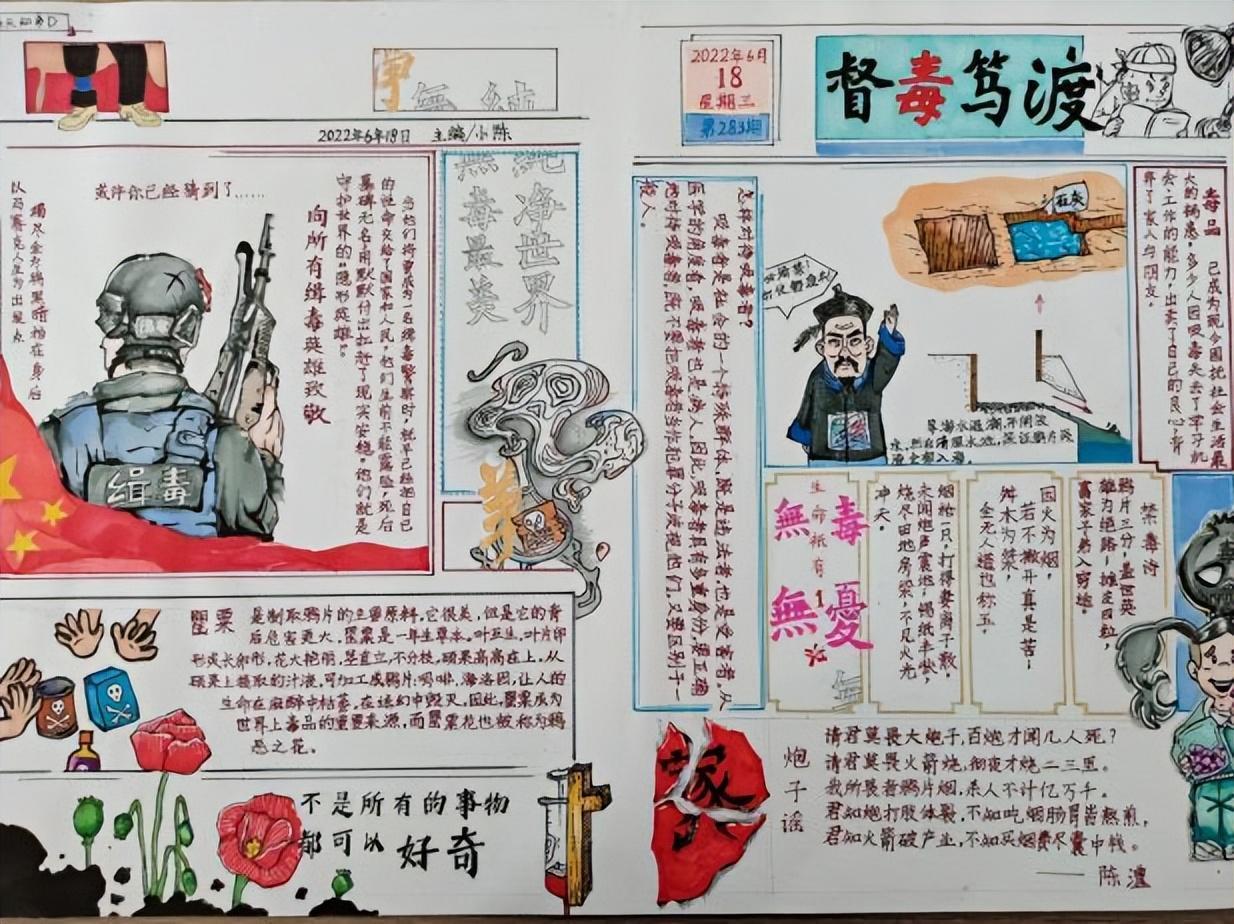 2022年6月18日 主编/小陈
或许你已经猜到了……
当他们将要成为一名缉毒警察时，就早已经把自己
的性命交给了国家和人民，他们生前不能露脸，死后
墓碑无名，用默默付出扛起了现实安稳，他们就是
守护世界的“隐形英雄”。
向所有缉毒英雄致敬
竭尽全力将黑暗挡在身后
缉毒
纯净世界
無毒最美
罂粟
是制取鸦片的主要原料，它很美，但是它的背
后危害更大，罂粟是一年生草本。叶互生，叶片卵
形或长卵形，花大艳丽，茎直立，不分枝，硕果高高在上，从
硕果上提取的汁液，可加工成鸦片、吗啡、海洛因，让人的
生命在麻醉中枯萎，在迷幻中毁灭，因此，罂粟成为
世界上毒品的重要来源，而罂粟花也被称为鸦
恶之花。
不是所有的事物
都可以 好奇
2022年6月
18
星期三
第283期
督毒笃渡
毒品 已成为现今困扰社会生活最
大的祸患，多少人因吸毒失去了学习机
会、工作的能力，出卖了自己的良心，背
弃了家人与朋友。
石灰
怎样对待吸毒者？
吸毒者是社会的一个特殊群体，既是违法者，也是受害者，从
医学的角度看，吸毒者也是病人，因此，吸毒者具有多重身份，要正确
地对待吸毒者，既不要把吸毒者当作犯罪分子歧视他们，又要区别于一
般人。
禁毒诗
鸦片三分，盖世英
雄为绝路，
富家子弟入穷途。
因火为烟，
若不撇开真是苦；
舛木为桀，
全无人道也称王。
烟枪一只，打得妻离子散，
未闻炮声震地，锡纸半张，
烧尽田地房梁，不见火光
冲天。
生命祇有1次
無毒
無憂
家
炮子谣
请君莫畏大炮子，百炮才闻几人死？
请君莫畏火箭烧，彻夜才烧二三里。
我所畏者鸦片烟，杀人不计亿万千。
君知炮打肢体裂，不知吃烟肠胃皆熬煎，
君知火箭破产业，不知买烟费尽囊中钱。
——陈澧